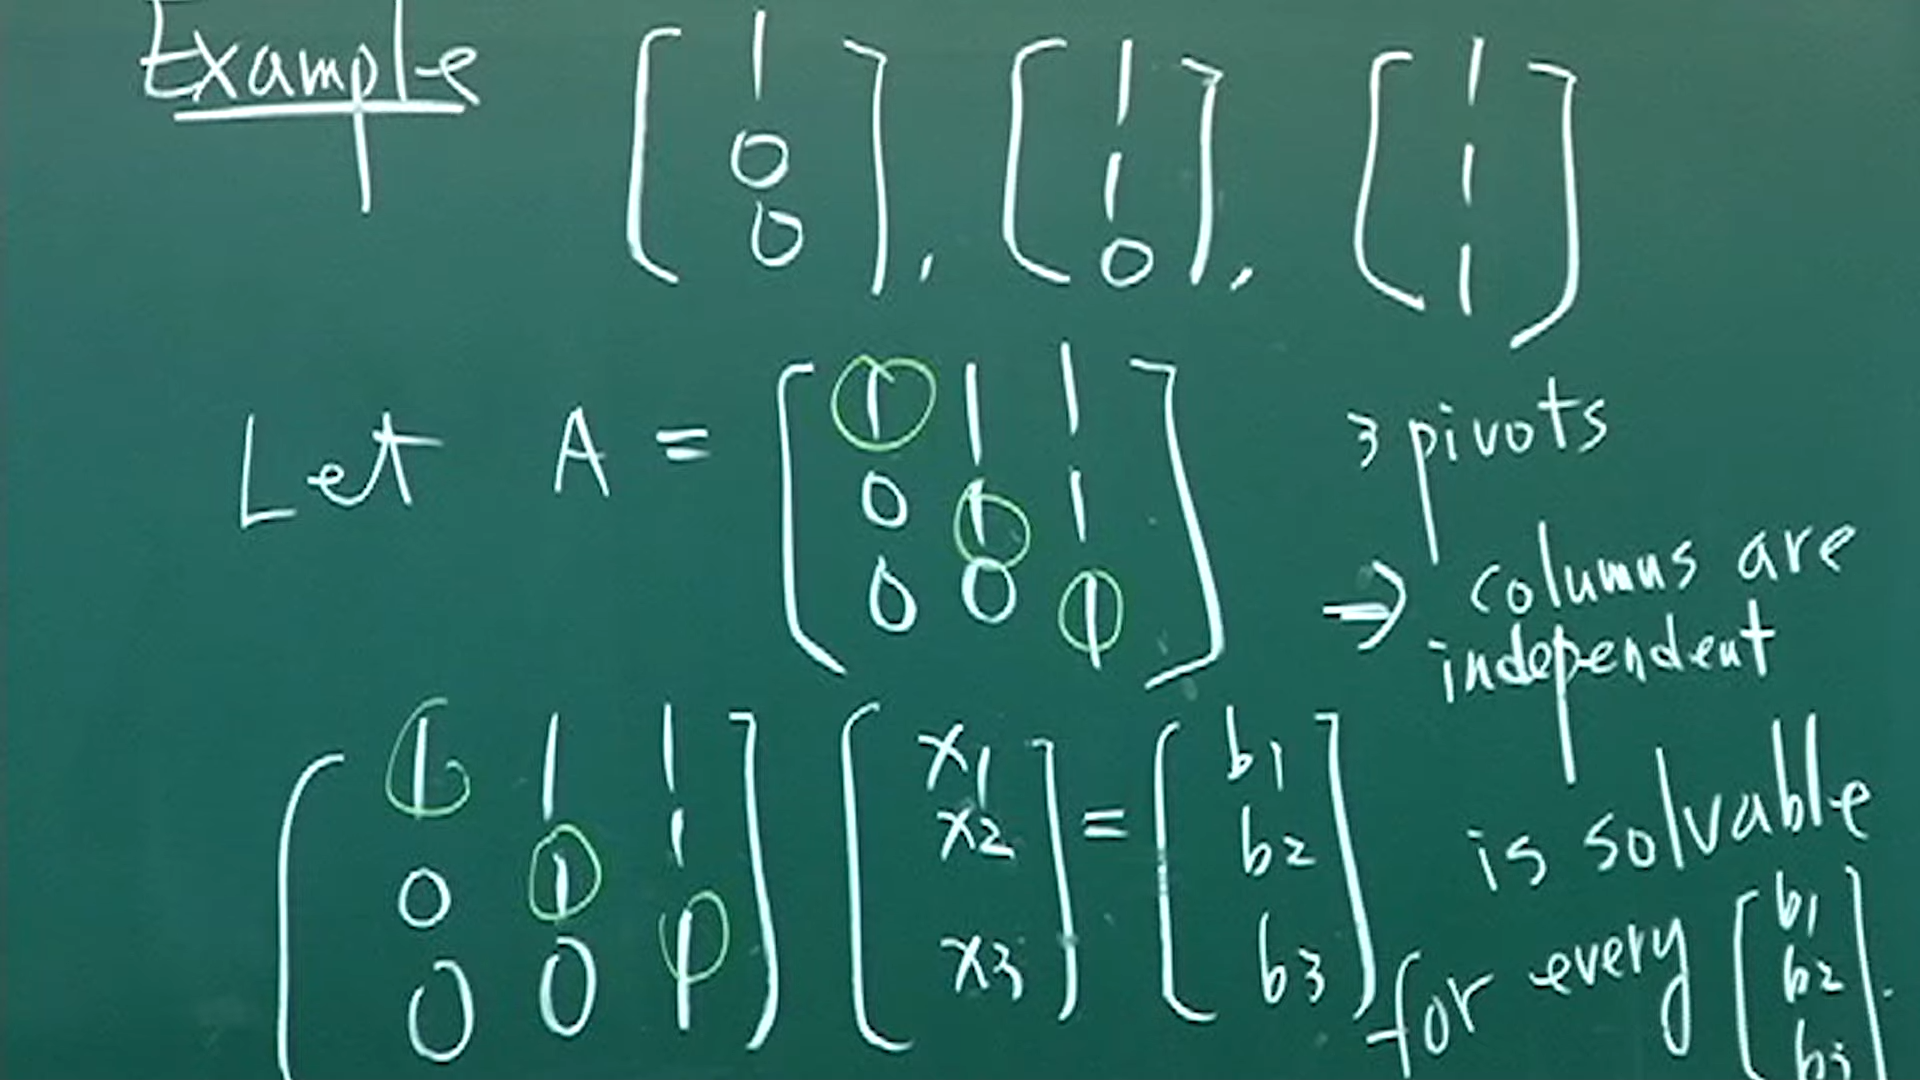 Example [ 1 0 0 ], [ 1 1 0 ], [ 1 1 1 ]
Let A = [ 1 1 1
0 1 1
0 0 1 ]
3 pivots
⇒ columns are
independent
[ 1 1 1
0 1 1
0 0 1 ] [ x1 x2 x3 ] = [ b1 b2 b3 ]
is solvable
for every [ b1 b2 b3 ].